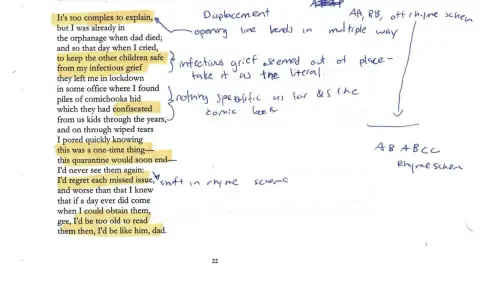 Displacement
opening line bends in multiple way
AA, BB, off rhyme schem
It's too complex to explain,
but I was already in
the orphanage when dad died;
and so that day when I cried,
to keep the other children safe
from my infectious grief
they left me in lockdown
in some office where I found
piles of comicbooks hid
which they had confiscated
from us kids through the years,
and on through wiped tears
I pored quickly knowing
this was a one-time thing—
this quarantine would soon end—
I'd never see them again:
I'd regret each missed issue,
and worse than that I knew
that if a day ever did come
when I could obtain them,
gee, I'd be too old to read
them then, I'd be like him, dad.
infectious grief seemed out of place—
take it as the literal.
nothing specific as far as the
comic book
shift in rhyme scheme
A B A B C C
Rhyme schem
22